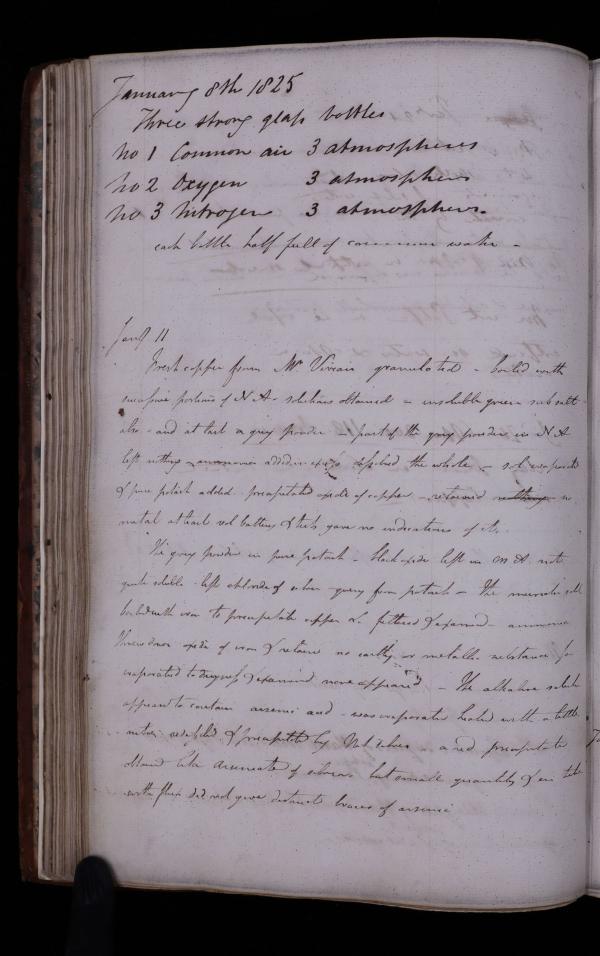 January 8th 1825
Three strong glass bottles
No 1 Common air 3 atmospheres
No 2 Oxygen 3 atmosphers
No 3 Nitrogen 3 atmosphers.
each bottle half full of common water -
Jany 11
Fresh copper from Mr Vivian granulated - boiled with
successive portions of N A - solutions obtained - insoluble green sub salt
also - and at last a grey powder - part of the grey powder in N A
left nothing - ammonia added in excess dissolved the whole - sol evaporated
& pure potash added precipitated oxide of copper - retained nothing no
metal at least vol battery & tests gave no indications of it.
The grey powder in pure potash - black oxide left in M A not
quite soluble - left chloride of silver - grey from potash - The muriatic sol
boiled with iron to precipitate copper &c filtered & examined - ammonia
threw down oxide of iron & retained no earthy or metallic substance for
evaporated to dryness & examined none appeared - The alkaline solution
appeared to contain arsenic and - was evaporated heated with a little
nitre redissolved & precipitated by Nit silver - a red precipitate
obtained like arseniate of silver but small quantity & in tube
with flux did not give distinct traces of arsenic